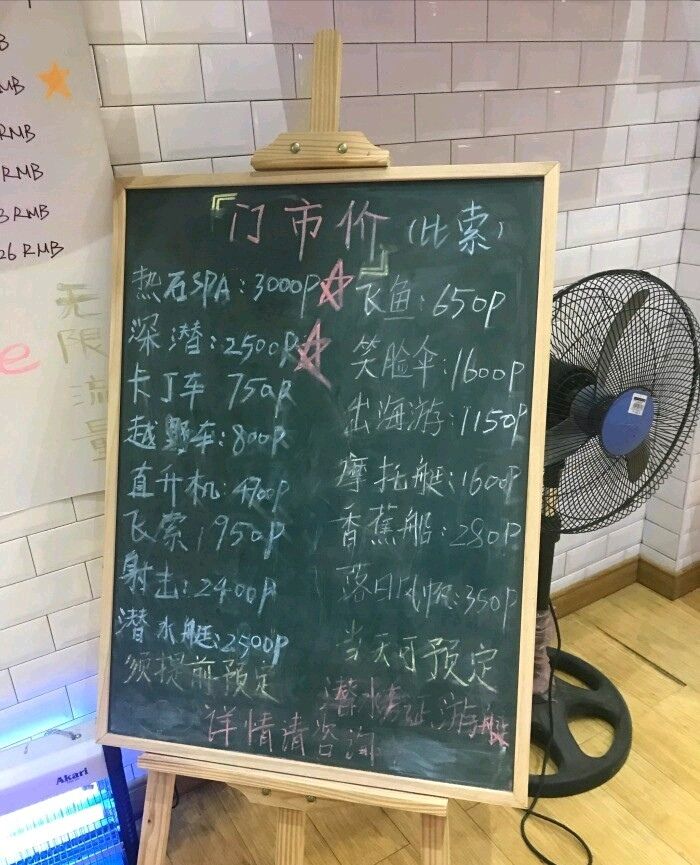 RMB
RMB
3 RMB
26 RMB
无
限
流
量
e
「门市价」(比索)
热石SPA:3000P
深潜:2500P
卡丁车 750P
越野车:800P
直升机:4900P
飞索:950P
射击:2400P
潜水艇:2500P
须提前预定
飞鱼:650P
笑脸伞:1600P
出海游:1150P
摩托艇:1600P
香蕉船:280P
落日风帆:350P
当天可预定
潜水考证、游艇
详情请咨询
Akari